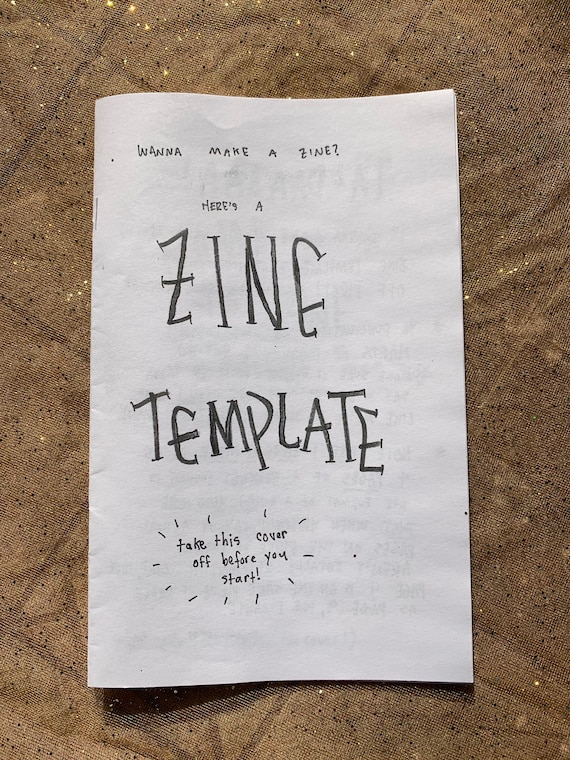 WANNA MAKE A ZINE?
HERE'S A
ZINE
TEMPLATE
take this cover
off before you
start!